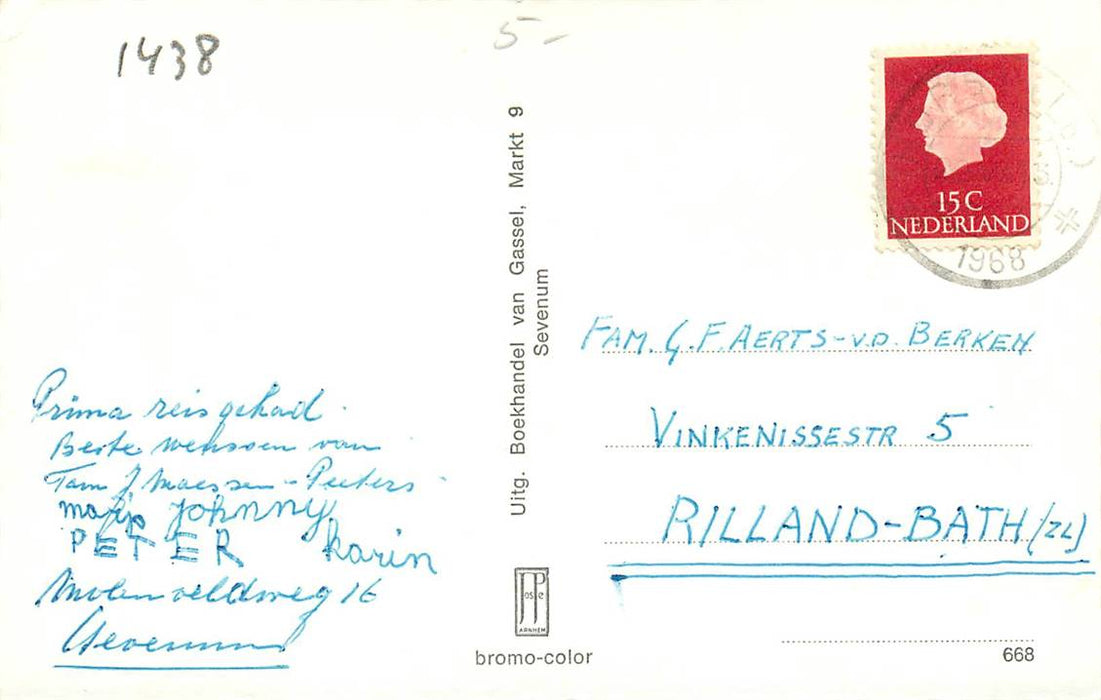 1438
5-
15 C
NEDERLAND
1968
Uitg. Boekhandel van Gassel, Markt 9
Sevenum
FAM. G.F. AERTS-V.D. BERKEN
VINKENISSESTR 5
RILLAND-BATH (ZL)
Prima reis gehad.
Beste wensen van
Fam J Maessen-Peeters
Johnny
PETER Karin
Molenveldweg 16
Sevenum
JosPe
ARNHEM
bromo-color
668